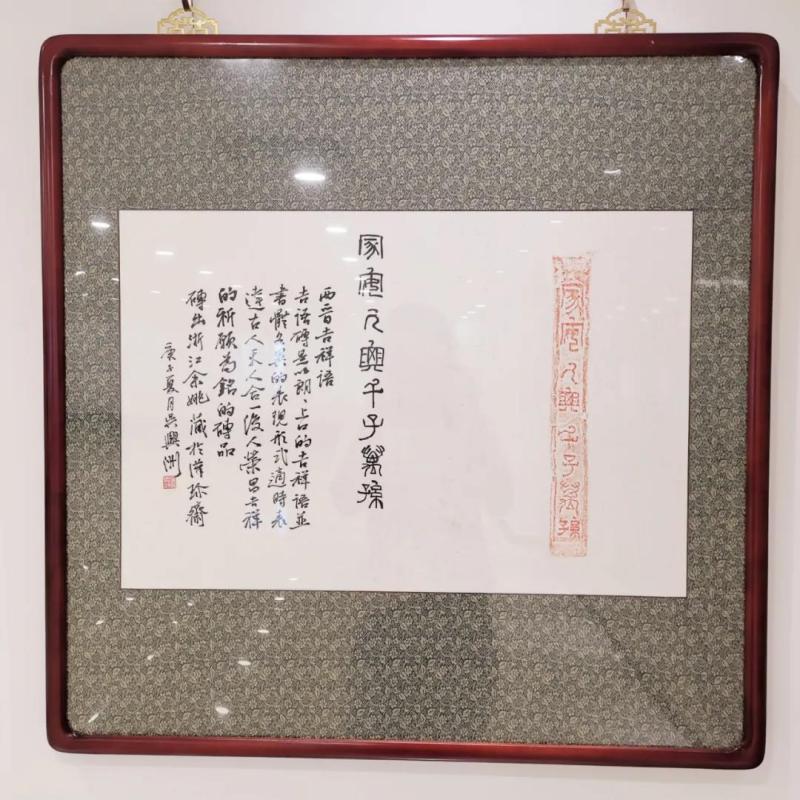 家人興千子萬孫
家人興千子萬孫
西晉吉祥語
吉語磚是以朗、上口的吉祥語並
書體各異的表現形式適時表
達古人天人合一後人榮昌吉祥
的祈願為銘的磚品
磚出浙江余姚藏於珍齋
庚子夏月吳興